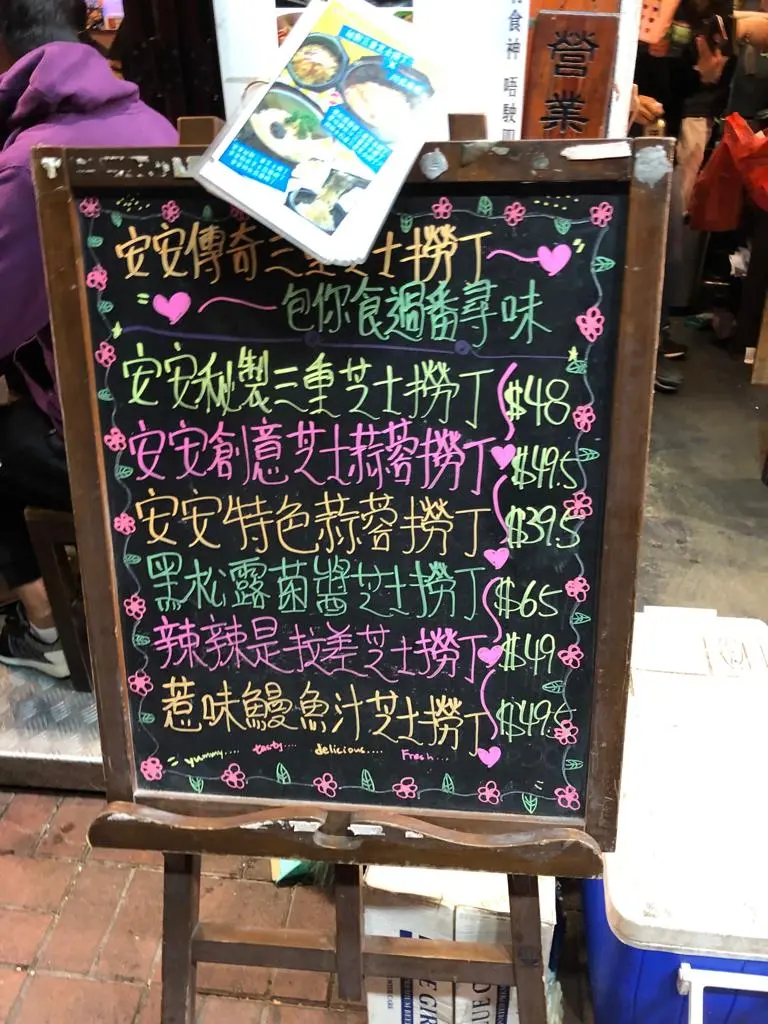 營業
食神 唔駛
安安傳奇三重芝士撈丁
包你食過番尋味
安安秘製三重芝士撈丁 $48
安安創意芝士蒜蓉撈丁 $49.5
安安特色蒜蓉撈丁 $39.5
黑松露菌醬芝士撈丁 $65
辣辣是拉差芝士撈丁 $49
惹味鰻魚汁芝士撈丁 $49.5
yummy.... tasty... delicious.... Fresh...